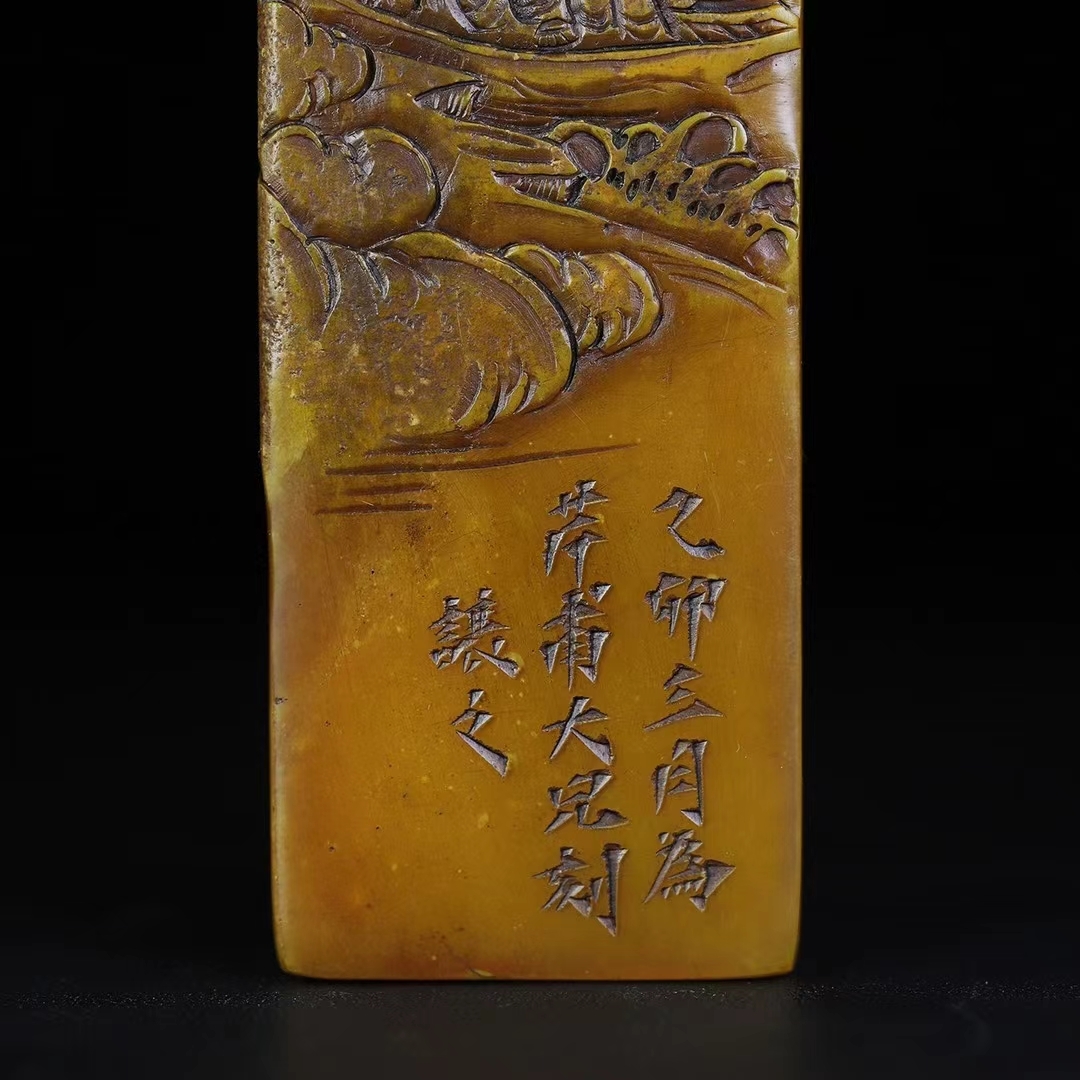 乙卯三月為
芹甫大兄刻
讓之